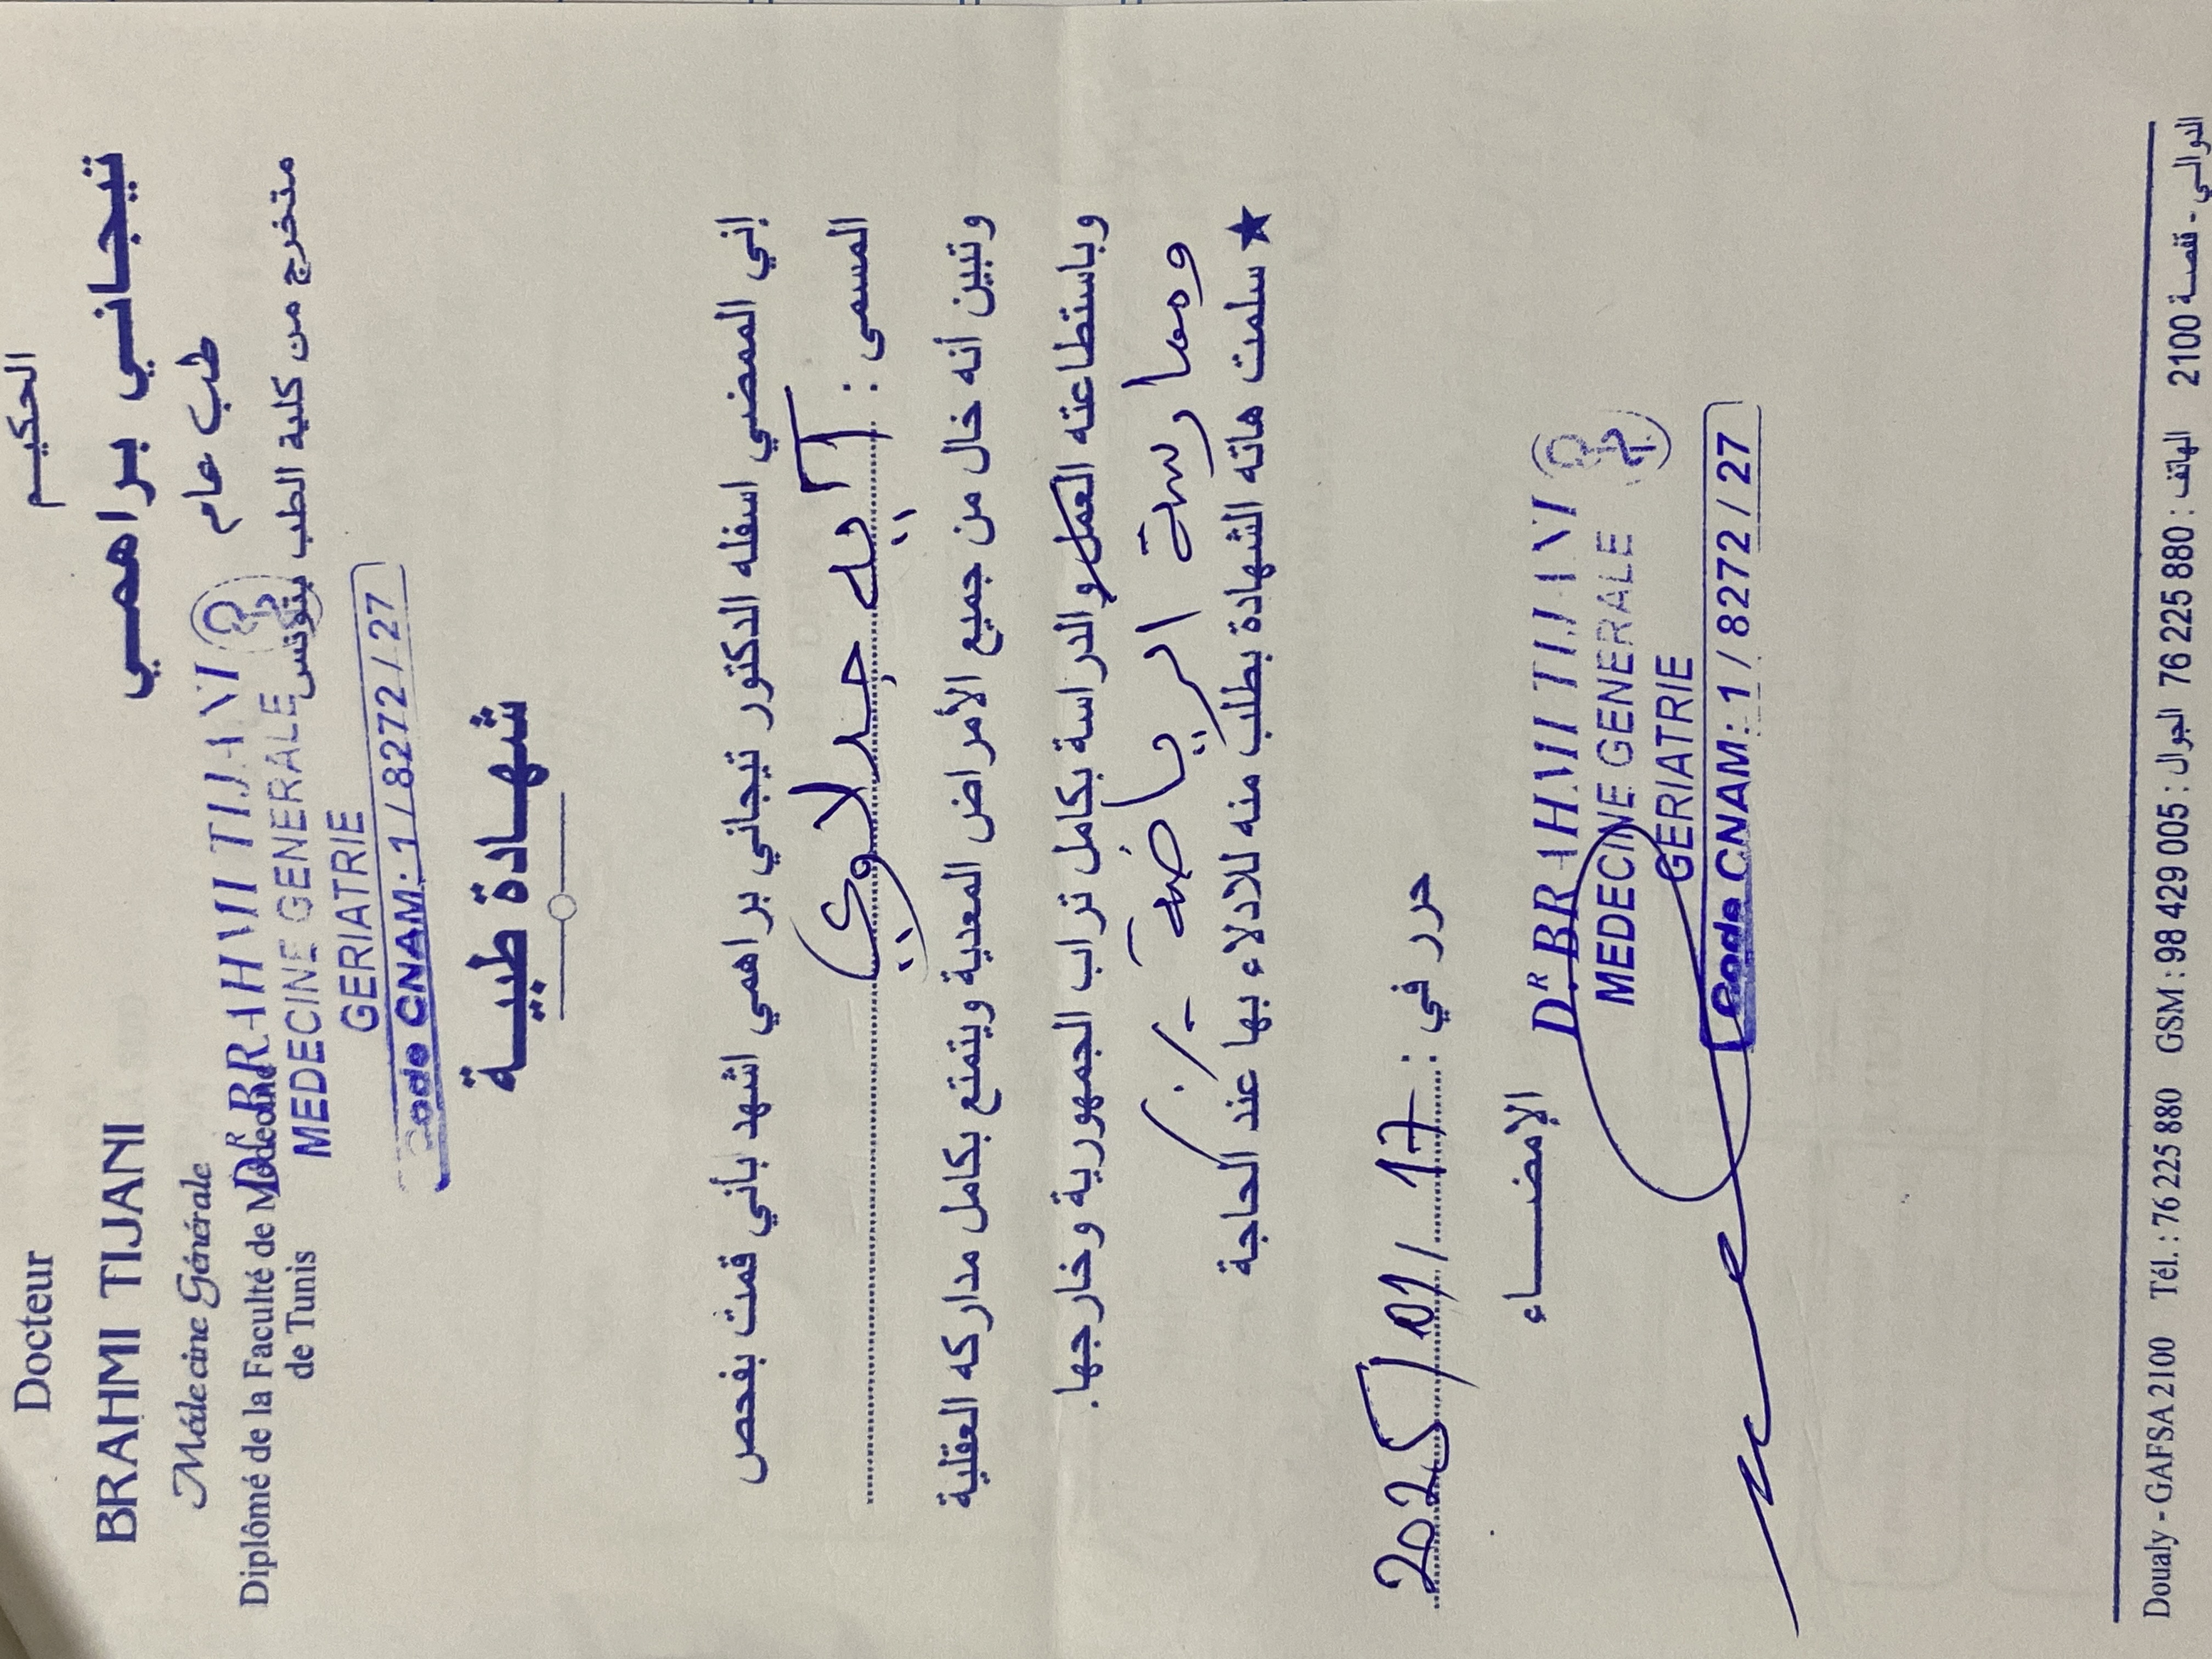 Docteur
BRAHMI TIJANI
Médecine Générale
Diplômé de la Faculté de Médecine
de Tunis
الحكيم
تيجاني براهمي
طب عام
متخرج من كلية الطب بتونس
DR BRAHMI TIJANI
MEDECINE GENERALE
GERIATRIE
Code CNAM: 1 / 8272 / 27
شهادة طبية
إني الممضي اسفله الدكتور تيجاني براهمي اشهد بأني قمت بفحص
المسمى : آية جدلاوي
وتبين أنه خال من جميع الأمراض المعدية ويتمتع بكامل مداركه العقلية
وباستطاعته العمل والدراسة بكامل تراب الجمهورية وخارجها.
وممارسة الرياضة ./-
★ سلمت هاته الشهادة بطلب منه للادلاء بها عند الحاجة
حرر في : 17 / 01 / 2025
الإمضاء
DR BRAHMI TIJANI
MEDECINE GENERALE
GERIATRIE
Code CNAM: 1 / 8272 / 27
Doualy - GAFSA 2100 Tél. : 76 225 880 GSM : 98 429 005 الدوالي - قفصة 2100 الهاتف : 76 225 880 الجوال : 98 429 005